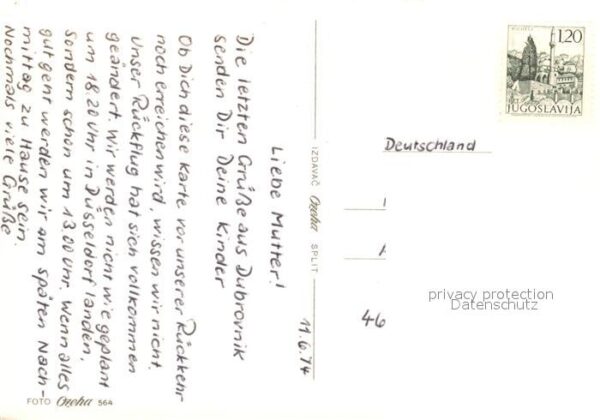 11.6.74
Liebe Mutter!
Die letzten Grüße aus Dubrovnik
senden Dir Deine Kinder
Ob Dich diese Karte vor unserer Rückkehr
noch erreichen wird, wissen wir nicht.
Unser Rückflug hat sich vollkommen
geändert. Wir werden nicht wie geplant
um 18.20 Uhr in Düsseldorf landen,
sondern schon um 13.00 Uhr. Wenn alles
gut geht werden wir am späten Nach-
mittag zu Hause sein.
Nochmals viele Grüße
FOTO Ozeha 564
IZDAVAČ Ozeha SPLIT
1.20
JUGOSLAVIJA
Deutschland
46
privacy protection
Datenschutz